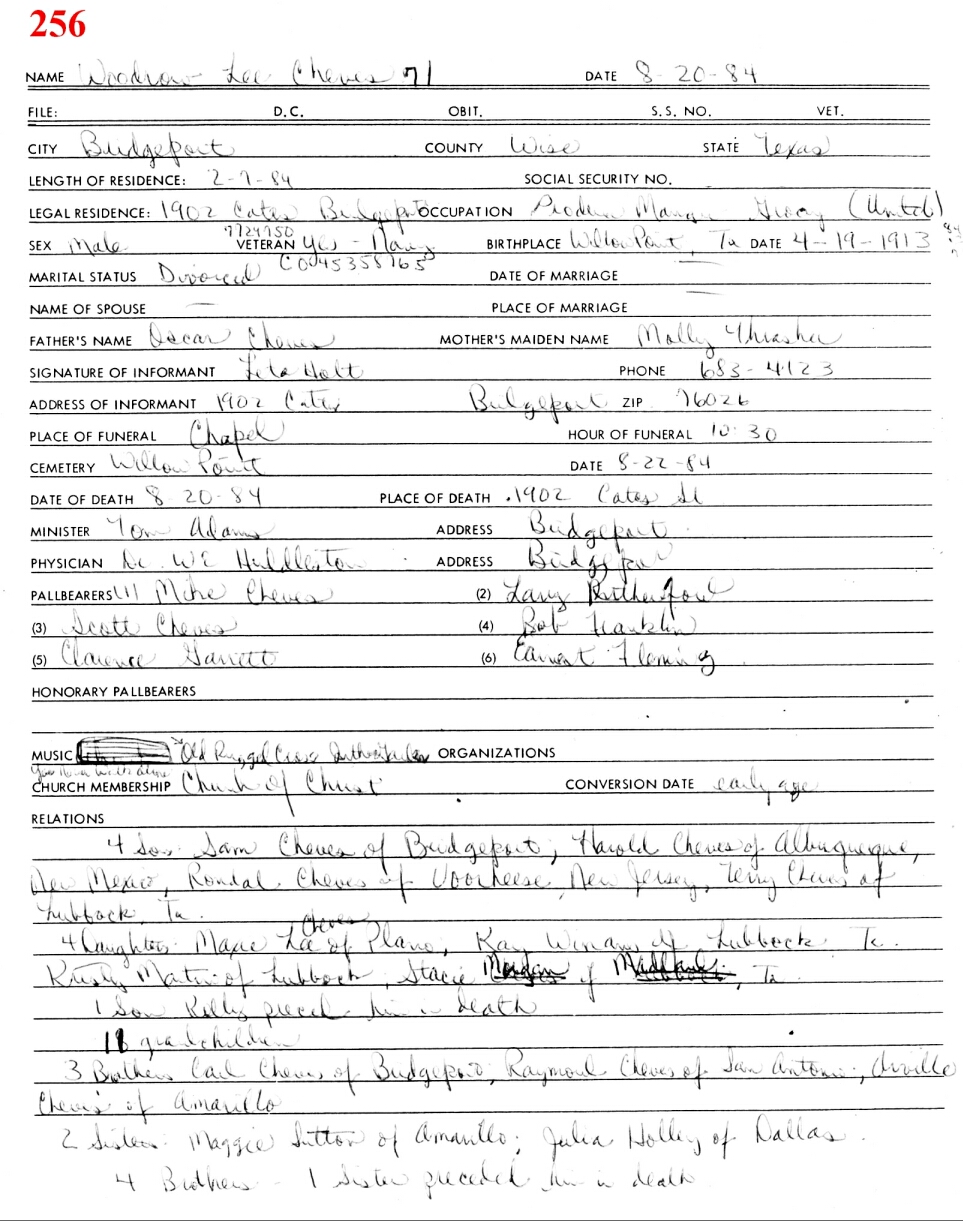 256
NAME Woodrow Lee Cheves 71 DATE 8-20-84
FILE: D.C. OBIT. S.S. NO. VET.
CITY Bridgeport COUNTY Wise STATE Texas
LENGTH OF RESIDENCE: 2-7-84 SOCIAL SECURITY NO.
LEGAL RESIDENCE: 1902 Cates Bridgeport OCCUPATION (United)
7724950
SEX Male VETERAN Yes - Navy BIRTHPLACE Willow Point, Tx DATE 4-19-1913
C0045358765
MARITAL STATUS Divorced DATE OF MARRIAGE —
NAME OF SPOUSE — PLACE OF MARRIAGE —
FATHER'S NAME Oscar Cheves MOTHER'S MAIDEN NAME Molly Thrasher
SIGNATURE OF INFORMANT Leta Holt PHONE 683-4123
ADDRESS OF INFORMANT 1902 Cates Bridgeport ZIP 76026
PLACE OF FUNERAL Chapel HOUR OF FUNERAL 10:30
CEMETERY Willow Point DATE 8-22-84
DATE OF DEATH 8-20-84 PLACE OF DEATH 1902 Cates St
MINISTER Tom Adams ADDRESS Bridgeport
PHYSICIAN Dr. WE Huddleston ADDRESS Bridgeport
PALLBEARERS (1) Mike Cheves (2) Larry Rutherford
(3) Scott Cheves (4) Bob Franklin
(5) Clarence Garrett (6) Earnest Fleming
HONORARY PALLBEARERS
MUSIC Old Rugged Cross In the Garden ORGANIZATIONS
CHURCH MEMBERSHIP Church of Christ CONVERSION DATE early age
RELATIONS
4 Son. Sam Cheves of Bridgeport; Harold Cheves of Albuquerque,
New Mexico, Rondal Cheves of Voorheese, New Jersey, Terry Cheves of
Lubbock, Tx.
Cheves
4 Daughters. Maxie Lee of Plano; Kay Winans of Lubbock Tx.
Kristy of Lubbock, Stacie of , Tx
1 Son Kelly preced him in death
18 grandchildren
3 Brothers Carl Cheves of Bridgeport; Raymond Cheves of San Antonio; Orville
Cheves of Amarillo
2 Sisters. Maggie Sutton of Amarillo; Julia Holley of Dallas.
4 Brothers - 1 Sister preceded him in death